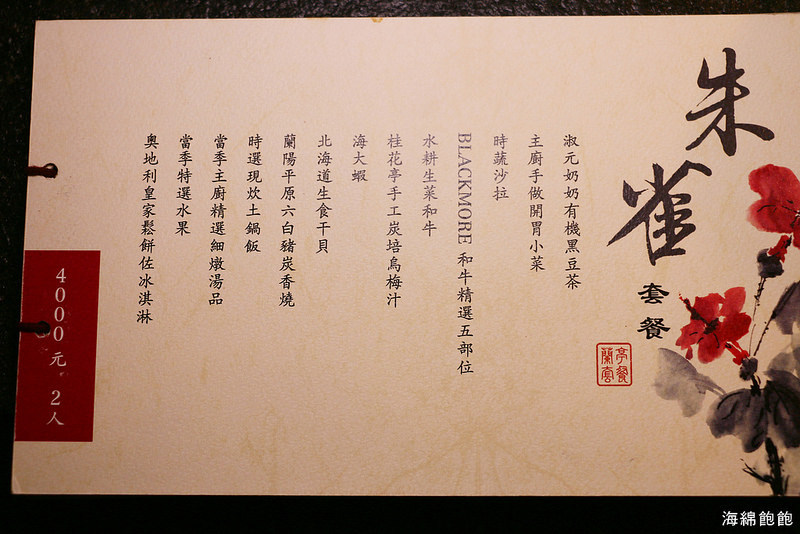 朱雀
套餐
蘭亭套餐
淑元奶奶有機黑豆茶
主廚手做開胃小菜
時蔬沙拉
BLACKMORE 和牛精選五部位
水耕生菜和牛
桂花亭手工炭培烏梅汁
海大蝦
北海道生食干貝
蘭陽平原六白豬炭香燒
時選現炊土鍋飯
當季主廚精選細燉湯品
當季特選水果
奧地利皇家鬆餅佐冰淇淋
4000元 2人
海綿飽飽